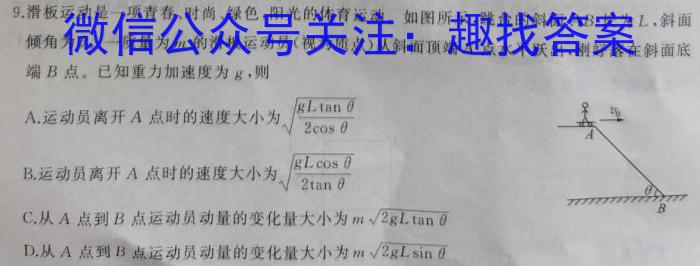 9.滑板运动是一项青春、时尚、绿色、阳光的体育运动。如图所示,跳台的斜面AB长为L,斜面
倾角为 质量为m的滑板运动员(视为质点)从斜面顶端A点水平跃出,刚好落在斜面底
微信公众号关注：趣找答案
端 B 点。已知重力加速度为 g,则
A.运动员离开 A 点时的速度大小为√(gL tan θ / 2cos θ)
B.运动员离开 A 点时的速度大小为√(gL cos θ / 2tan θ)
C.从 A 点到 B 点运动员动量的变化量大小为 m√(2gL tan θ)
D.从 A 点到 B 点运动员动量的变化量大小为 m√(2gL sin θ)
v₀
A
θ
B